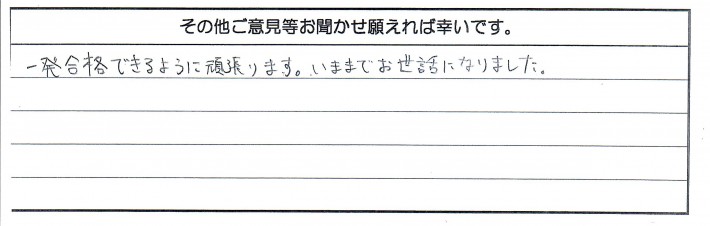 その他ご意見等お聞かせ願えれば幸いです。
一発合格できるように頑張ります。いままでお世話になりました。